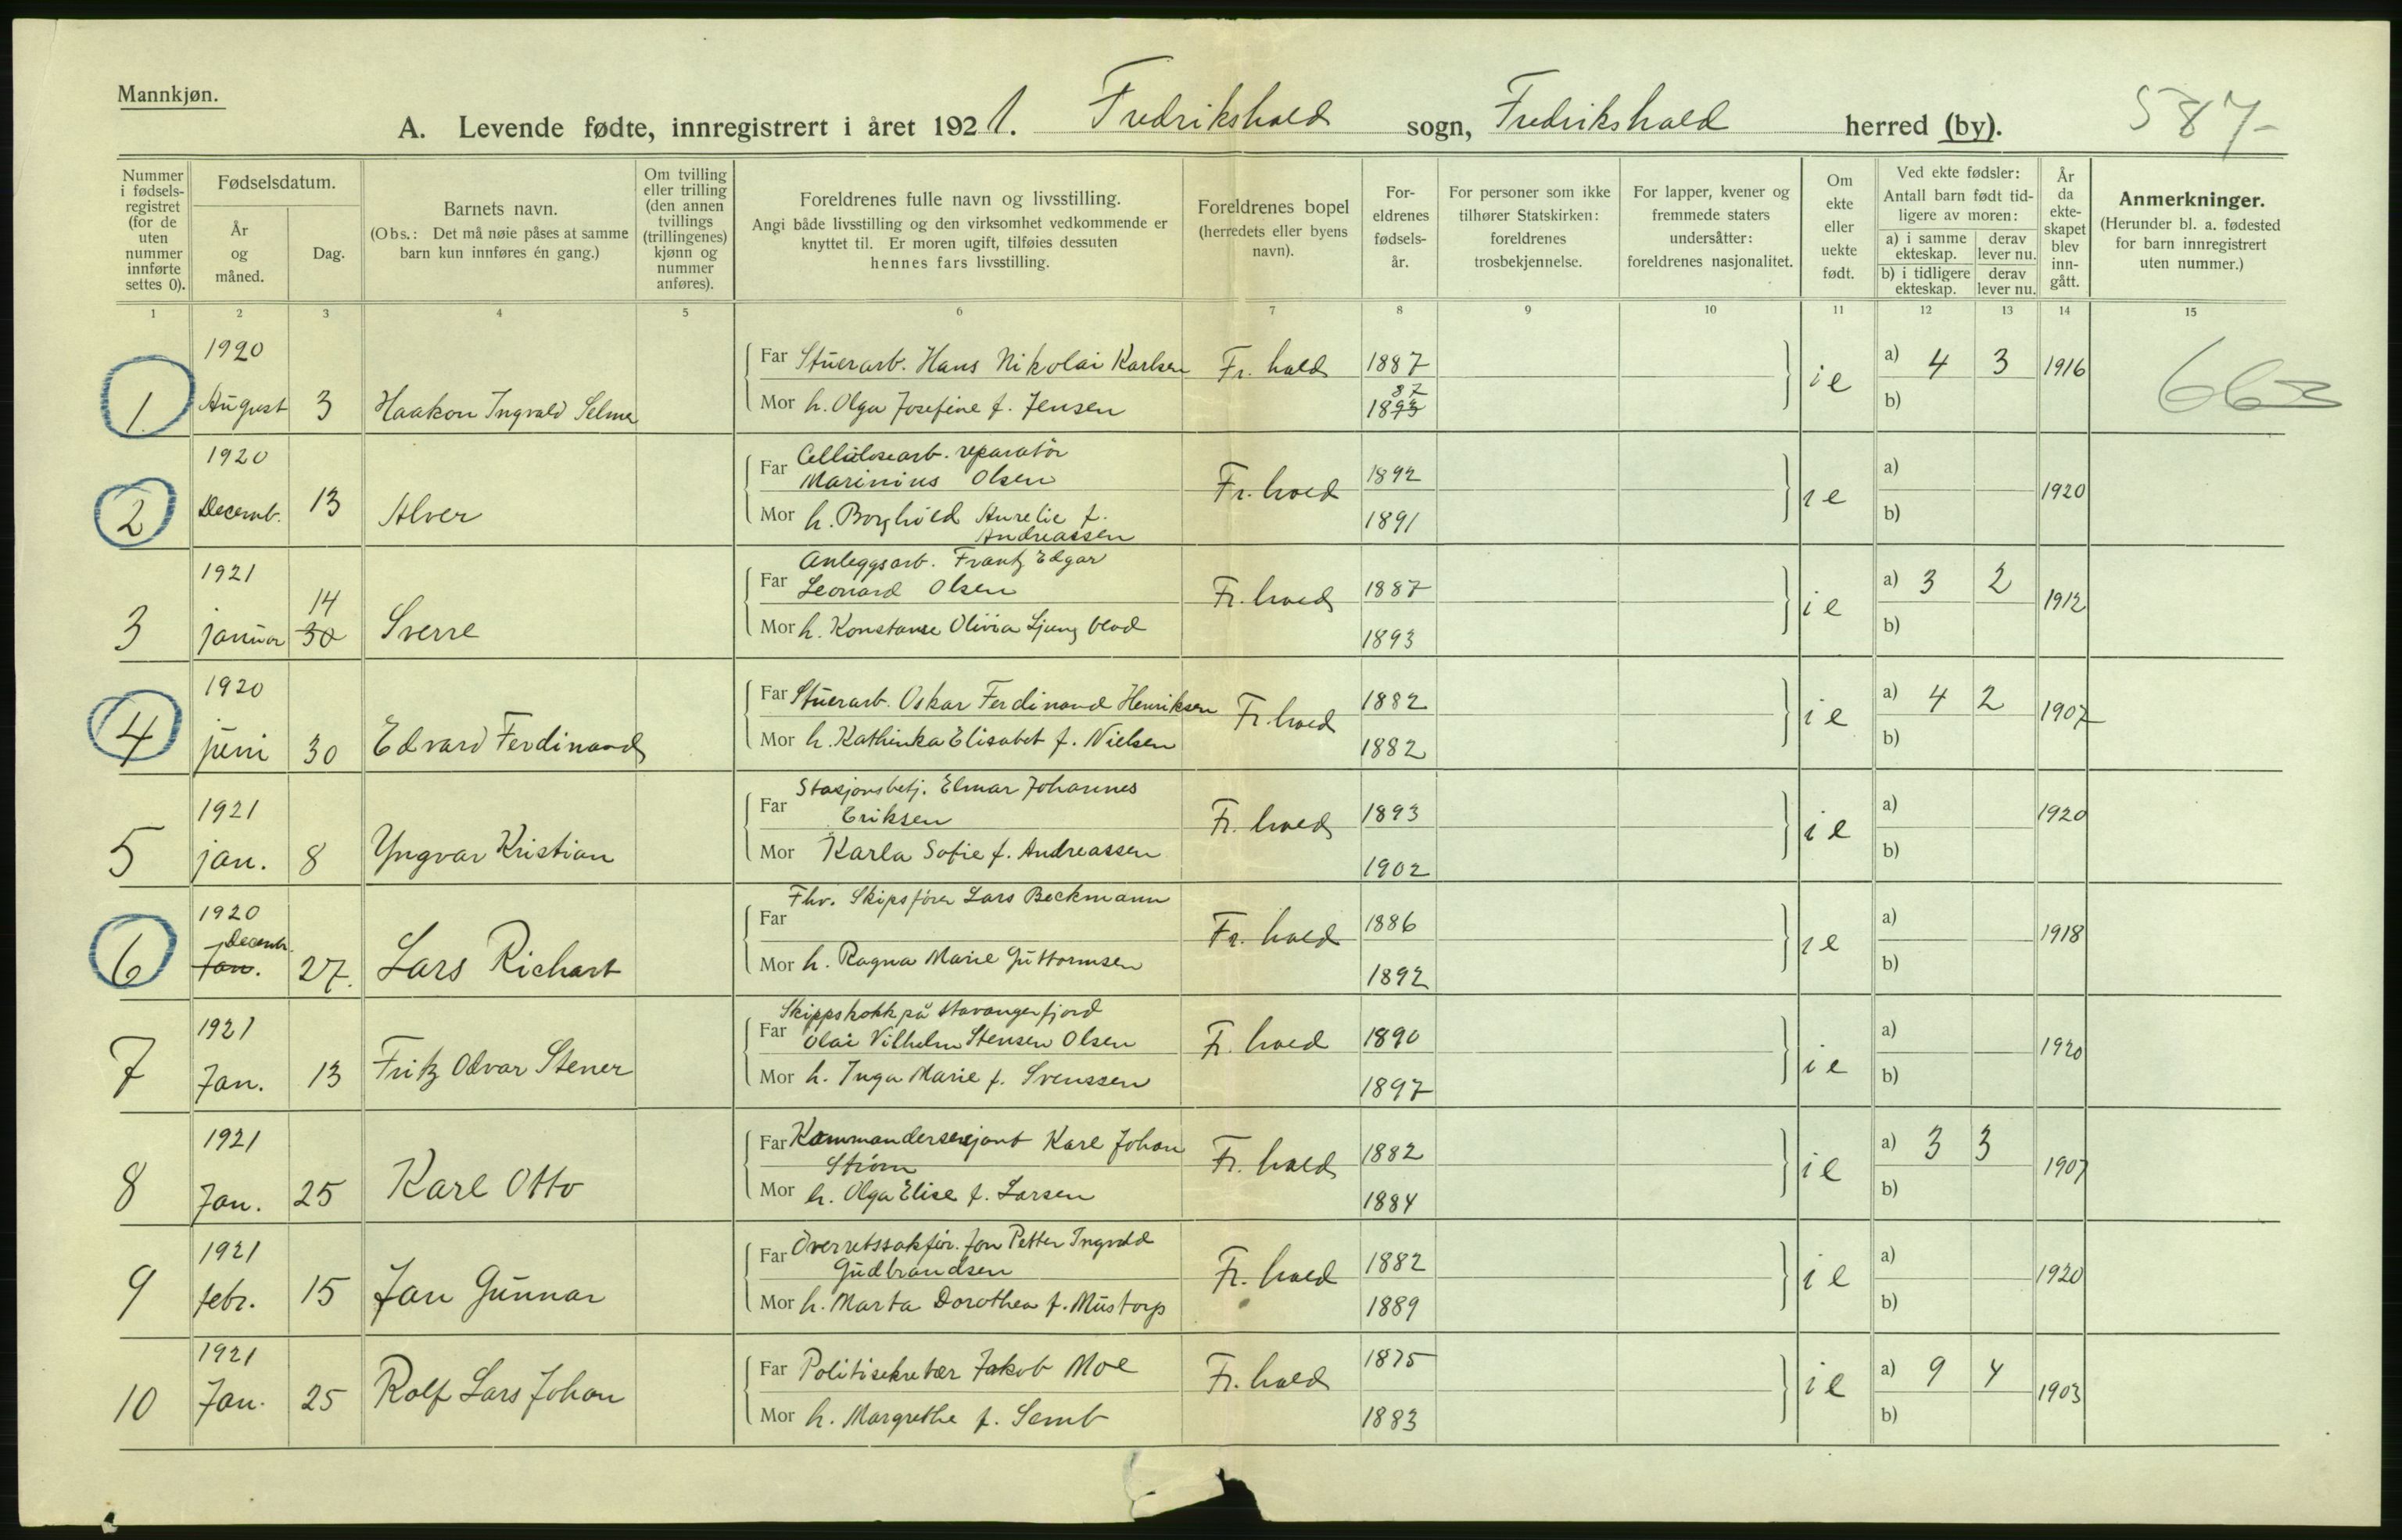 Mannkjøn.
A. Levende fødte, innregistrert i året 1921. Fredrikshald sogn, Fredrikshald herred (by). 587-
Nummer i fødsels-registret (for de uten nummer innførte settes 0).
Fødselsdatum.
År og måned.
Dag.
Barnets navn.
(Obs.: Det må nøie påses at samme barn kun innføres én gang.)
Om tvilling eller trilling (den annen tvillings (trillingenes) kjønn og nummer anføres).
Foreldrenes fulle navn og livsstilling.
Angi både livsstilling og den virksomhet vedkommende er knyttet til. Er moren ugift, tilføies dessuten hennes fars livsstilling.
Foreldrenes bopel (herredets eller byens navn).
For-eldrenes fødsels-år.
For personer som ikke tilhører Statskirken: foreldrenes trosbekjennelse.
For lapper, kvener og fremmede staters undersåtter: foreldrenes nasjonalitet.
Om ekte eller uekte født.
Ved ekte fødsler: Antall barn født tid-ligere av moren:
a) i samme ekteskap. derav lever nu.
b) i tidligere ekteskap. derav lever nu.
År da ekte-skapet blev inn-gått.
Anmerkninger.
(Herunder bl. a. fødested for barn innregistrert uten nummer.)
1 2 3 4 5 6 7 8 9 10 11 12 13 14 15
1 1920 August 3 Haakon Ingvald Selmer
Far Stuerarb. Hans Nikolai Karlsen Fr. hald 1887 ie a) 4 3 1916 663
Mor h. Olga Josefine f. Jensen 1893 87 b)
2 1920 Decemb. 13 Alver
Far Cellulosearb. reparatør
Marinius Olsen Fr. hald 1892 ie a) 1920
Mor h. Borghild Aurelie f.
Andreassen 1891 b)
3 1921 januar 30 14 Sverre
Far Anleggsarb. Frantz Edgar
Leonard Olsen Fr. hald 1887 ie a) 3 2 1912
Mor h. Konstanse Olivia Ljungblod 1893 b)
4 1920 juni 30 Edvard Ferdinand
Far Stuerarb. Oskar Ferdinand Henriksen Fr. hald 1882 ie a) 4 2 1907
Mor h. Kathinka Elisabet f. Nielsen 1882 b)
5 1921 jan. 8 Yngvar Kristian
Far Stasjonsbetj. Elmar Johannes
Eriksen Fr. hald 1893 ie a) 1920
Mor Karla Sofie f. Andreassen 1902 b)
6 1920 Decemb. Jan. 27. Lars Richart
Far Fhv. Skipsfører Lars Beckmann Fr. hald 1886 ie a) 1918
Mor h. Ragna Marie Guttormsen 1892 b)
7 1921 Jan. 13 Fritz Odvar Stener
Far Skippskokk på Stavangerfjord
Olai Vilhelm Stensen Olsen Fr. hald 1890 ie a) 1920
Mor h. Inga Marie f. Svenssen 1897 b)
8 1921 Jan. 25 Karl Otto
Far Kommandersersjant Karl Johan
Strøm Fr. hald 1882 ie a) 3 3 1907
Mor h. Olga Elise f. Larsen 1884 b)
9 1921 febr. 15 Jan Gunnar
Far Overretssakfør. Jon Petter Ingvald
Gudbrandsen Fr. hald 1882 ie a) 1920
Mor h. Marta Dorothea f. Mustorp 1889 b)
10 1921 Jan. 25 Rolf Lars Johan
Far Politisekretær Jakob Moe Fr. hald 1875 ie a) 9 4 1903
Mor h. Margrethe f. Semb 1883 b)